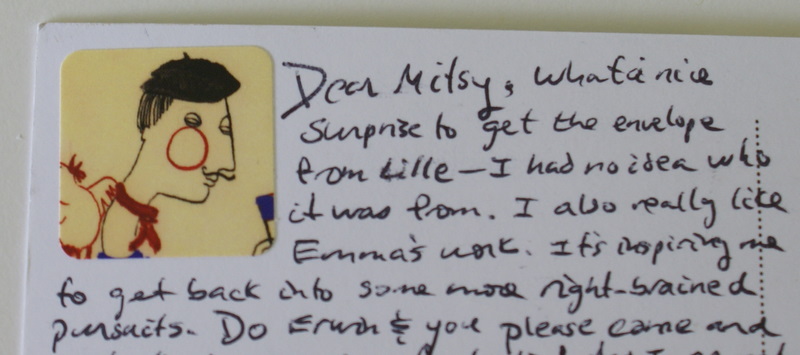 Dear Mitsy, what a nice
surprise to get the envelope
from Lille — I had no idea who
it was from. I also really like
Emma's work. It's inspiring me
to get back into some more right-brained
pursuits. Do Erwin & you please come and